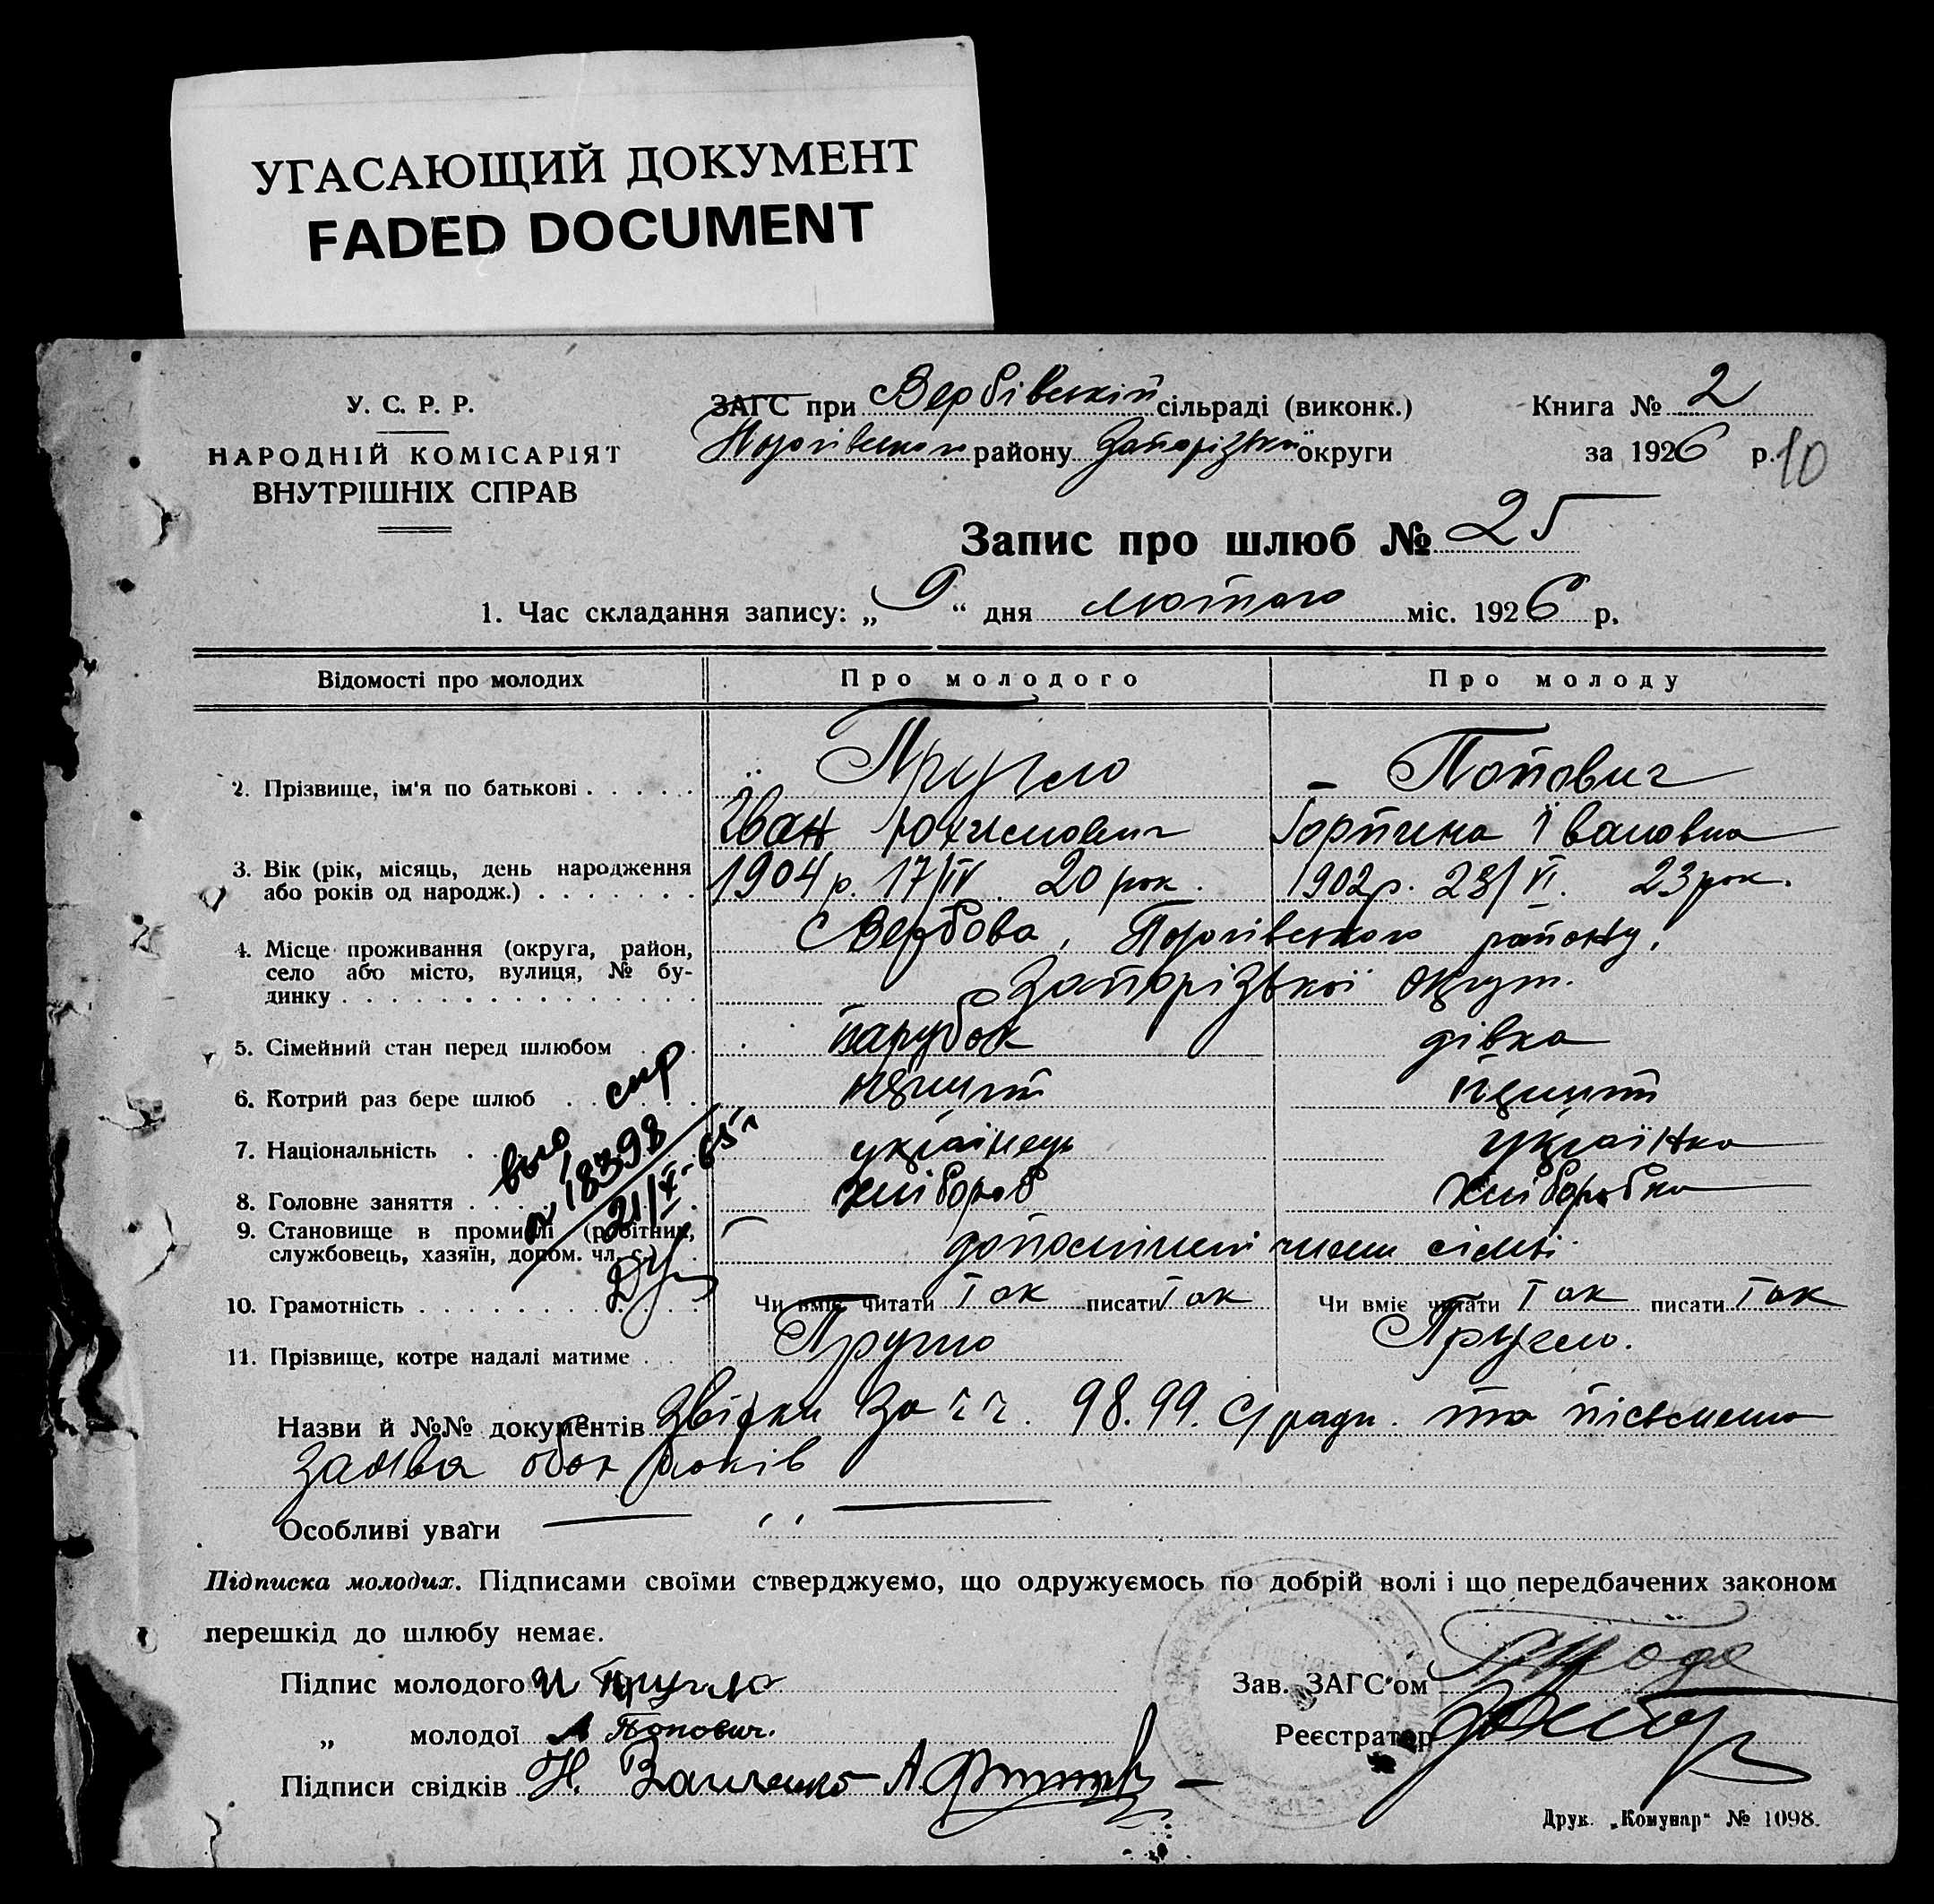 УГАСАЮЩИЙ ДОКУМЕНТ
FADED DOCUMENT
У. С. Р. Р.
НАРОДНІЙ КОМІСАРІЯТ
ВНУТРІШНІХ СПРАВ
ЗАГС при Вербівській сільраді (виконк.)
Пологівського району Запорізької округи
Книга № 2
за 1926 р.
10
Запис про шлюб № 25
1. Час складання запису: „ 9 “ дня лютого міс. 1926 р.
Відомості про молодих Про молодого Про молоду
2. Прізвище, ім'я по батькові Пругло Попович
Іван Юхимович Горпина Івановна
3. Вік (рік, місяць, день народження
або років од народж.) 1904 р. 17/IV 20 рок. 1902 р. 23/VI. 23 рок.
4. Місце проживання (округа, район,
село або місто, вулиця, № бу-
динку с Вербова, Пологівського району,
Запорізької округи.
5. Сімейний стан перед шлюбом парубок дівка
6. Котрий раз бере шлюб перший перший
7. Національність українець українка
8. Головне заняття хлібороб хліборобка
9. Становище в промислі (робітник,
службовець, хазяїн, допом. чл. с.) допомічні члени сімьі
10. Грамотність Чи вміє читати Так писати Так Чи вміє читати Так писати Так
11. Прізвище, котре надалі матиме Пругло Пругло.
спр
18398
21/
Назви й №№ документів Звідки за 98.99. С/ради. та пісьмена
заява обох
Особливі уваги
Підписка молодих. Підписами своїми стверджуємо, що одружуємось по добрій волі і що передбачених законом
перешкід до шлюбу немає.
Підпис молодого И Пругло
„ молодої А Попович.
Підписи свідків Н.
Зав. ЗАГС'ом
Реєстратор
Друк. „Комунар“ № 1098.